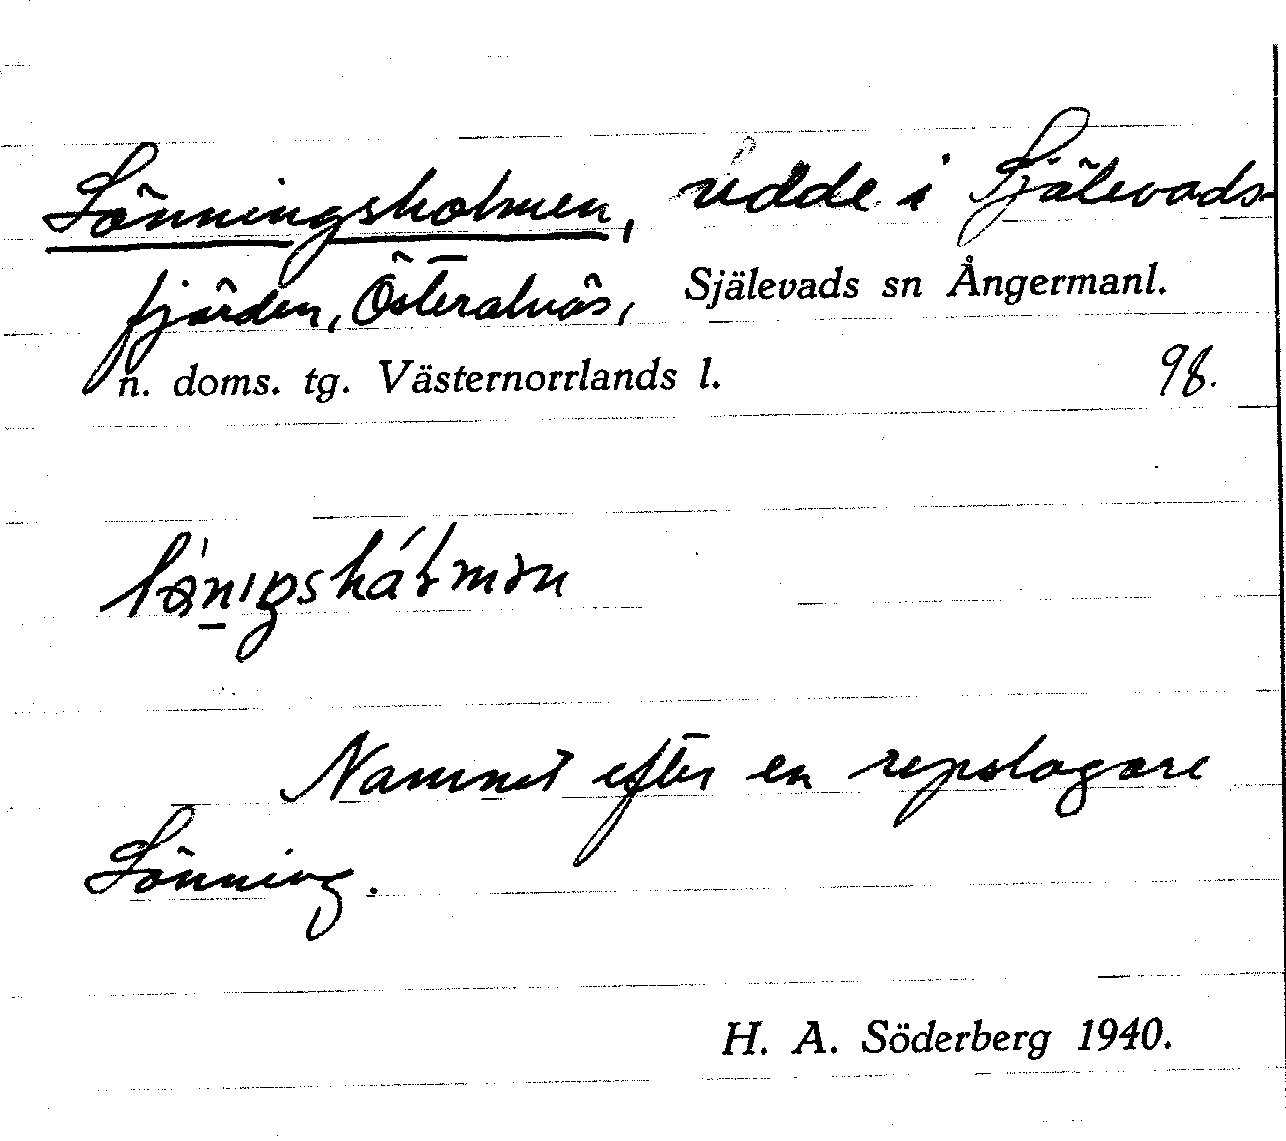 Lönningsholmen, udde i Själevads-
fjärden, Österalnäs, Själevads sn Ångermanl.
n. doms. tg. Västernorrlands l. 98.
Namnet efter en repslagare
Lönning.
H. A. Söderberg 1940.